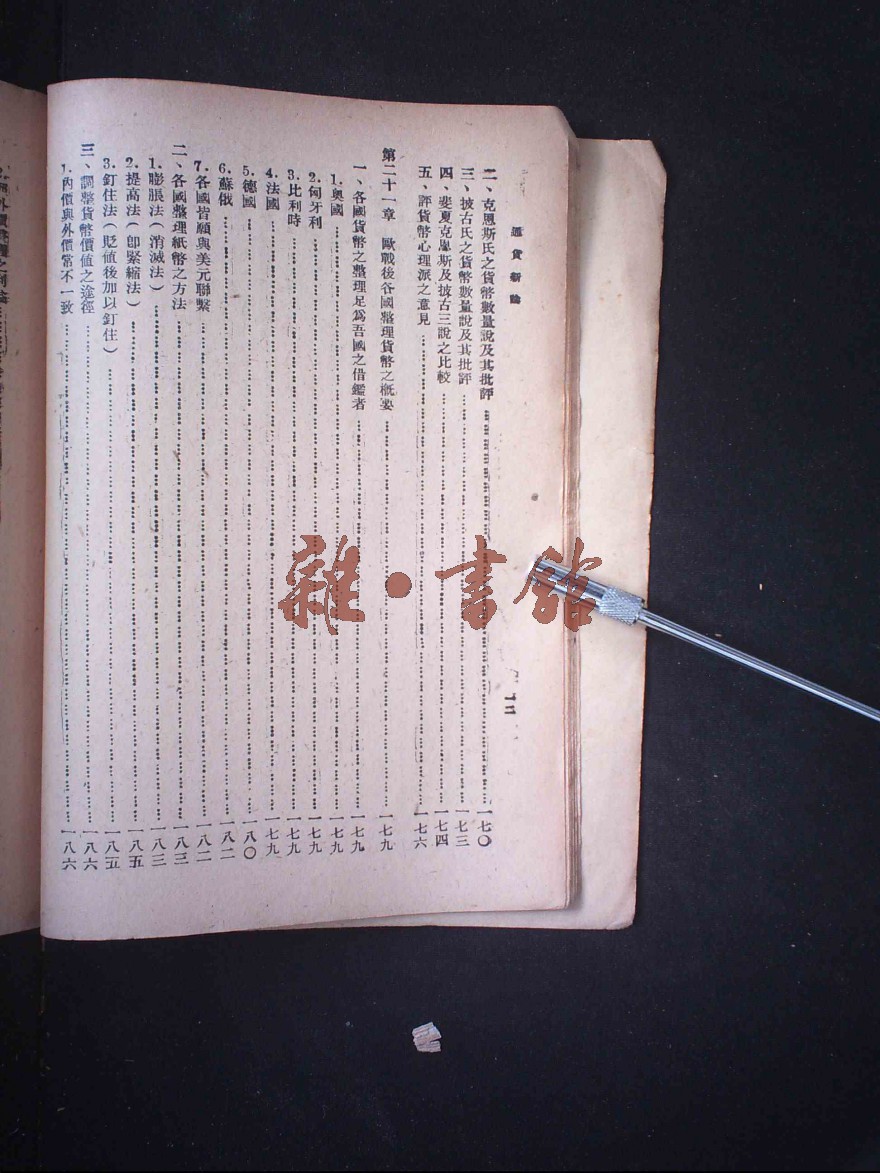 通貨新論
一二
二、克恩斯氏之貨幣數量說及其批評……一七〇
三、披古氏之貨幣數量說及其批評……一七三
四、斐夏克恩斯及披古三說之比較……一七四
五、評貨幣心理派之意見……一七六
第二十一章 歐戰後各國整理貨幣之概要……一七九
一、各國貨幣之整理足為吾國之借鑑者……一七九
1.奧國……一七九
2.匈牙利……一七九
3.比利時……一七九
4.法國……一七九
5.德國……一八〇
6.蘇俄……一八二
7.各國皆願與美元聯繫……一八二
二、各國整理紙幣之方法……一八三
1.膨脹法(消滅法)……一八三
2.提高法(卽緊縮法)……一八五
3.釘住法(貶値後加以釘住)……一八五
三、調整貨幣價値之途徑……一八六
1.內價與外價常不一致……一八六
雜·書館